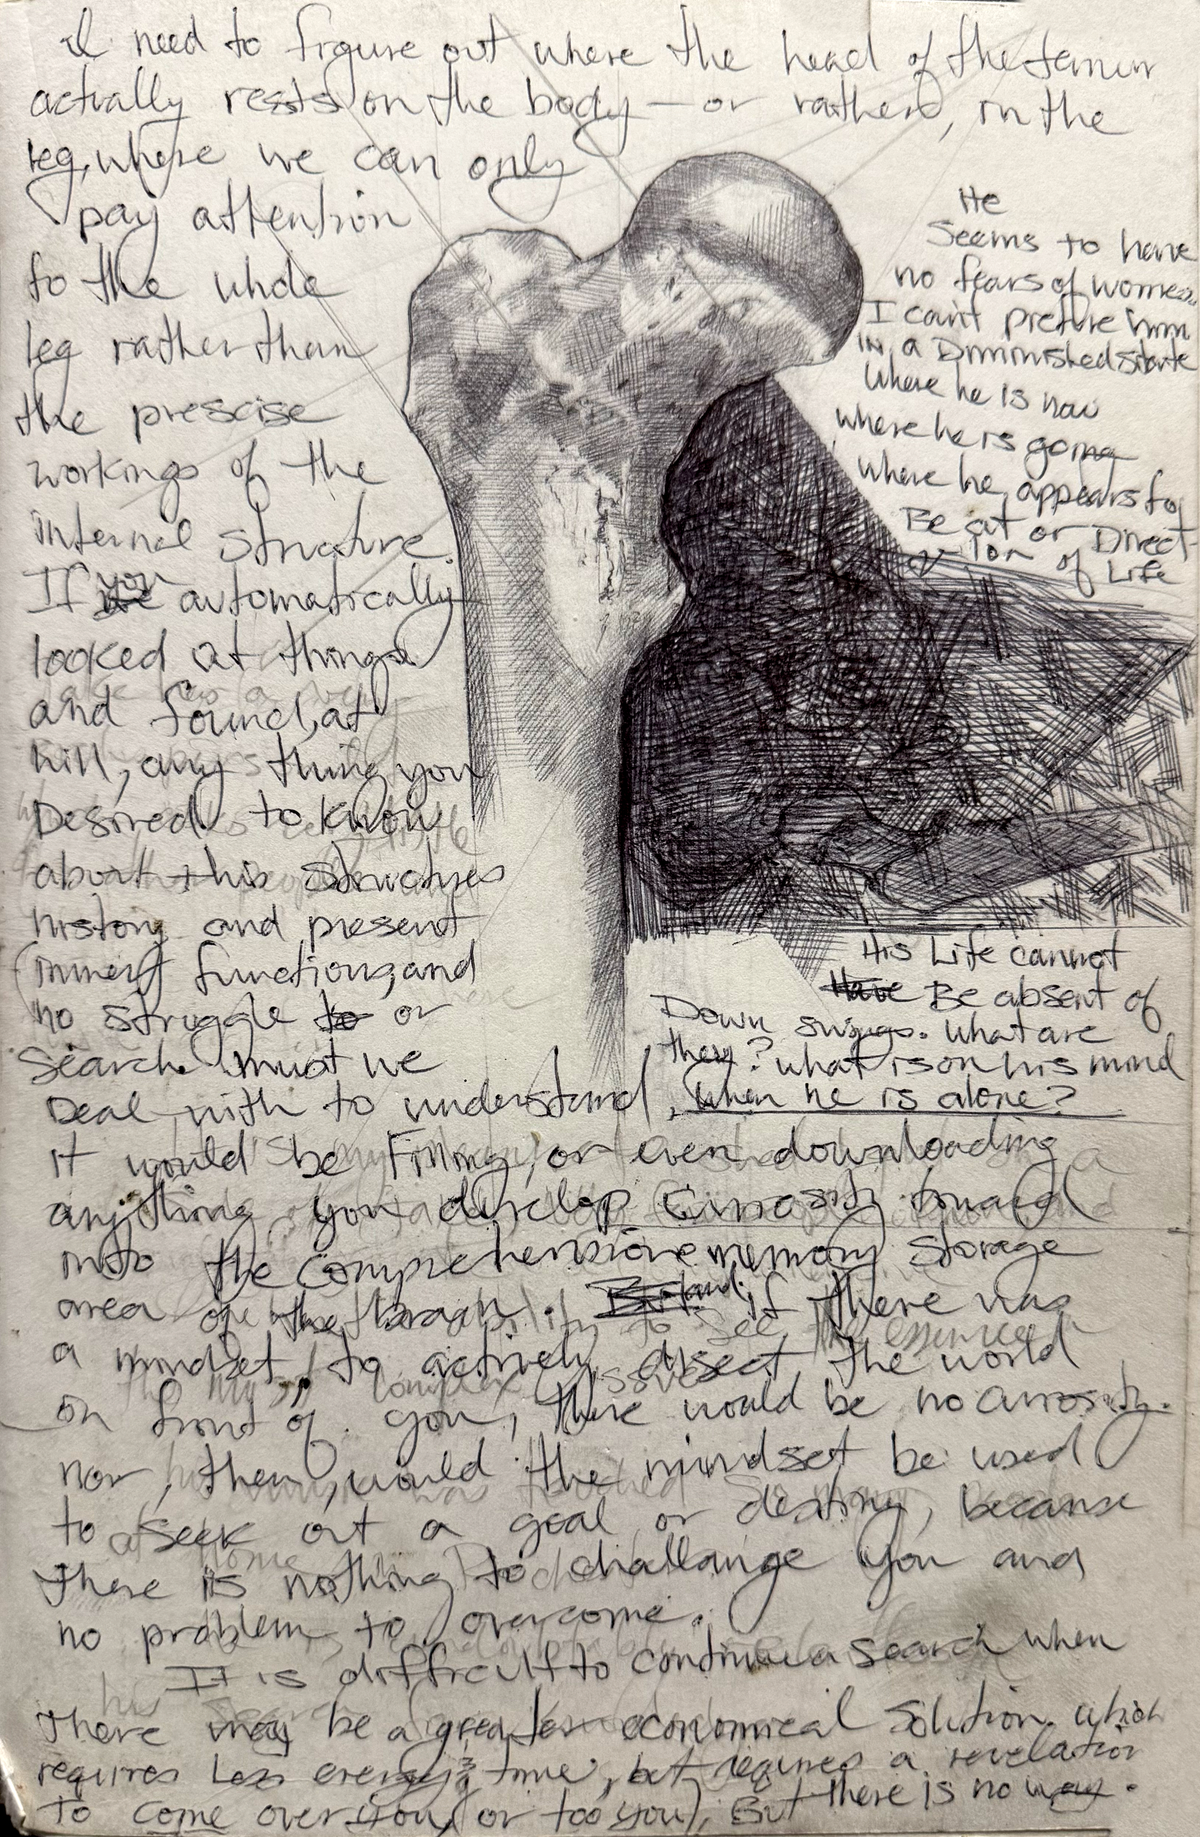 I need to figure out where the head of the femur
actually rests on the body — or rather, in the
leg, where we can only
pay attention
to the whole
leg rather than
the prescise
workings of the
internal structure.
If you automatically
looked at things
and found, at
will, any thing you
Desired to know
about this structures
history and present
functions, and
no struggle or
search must we
Deal with to understand,
it would be Filling, or even downloading
anything you develop curiosity toward
into the comprehensive memory storage
area of the brain. if there was
a mindset, to actively disect the world
in front of you, there would be no curiosity.
nor, then, would the mindset be used
to seek out a goal or destiny, because
there is nothing to challange you and
no problem to overcome.
It is difficult to continue a search when
there may be a greater economical solution which
requires Less energy & time, but requires a revelation
to come over you (or too you), But there is no way.
He
Seems to have
no fears of women
I can't picture him
IN a Diminished state
Where he is now
where he is going
where he appears to
Be at or Direct-
ion of Life
His Life cannot
Have Be absent of
Down swings. What are
they? what is on his mind
When he is alone?